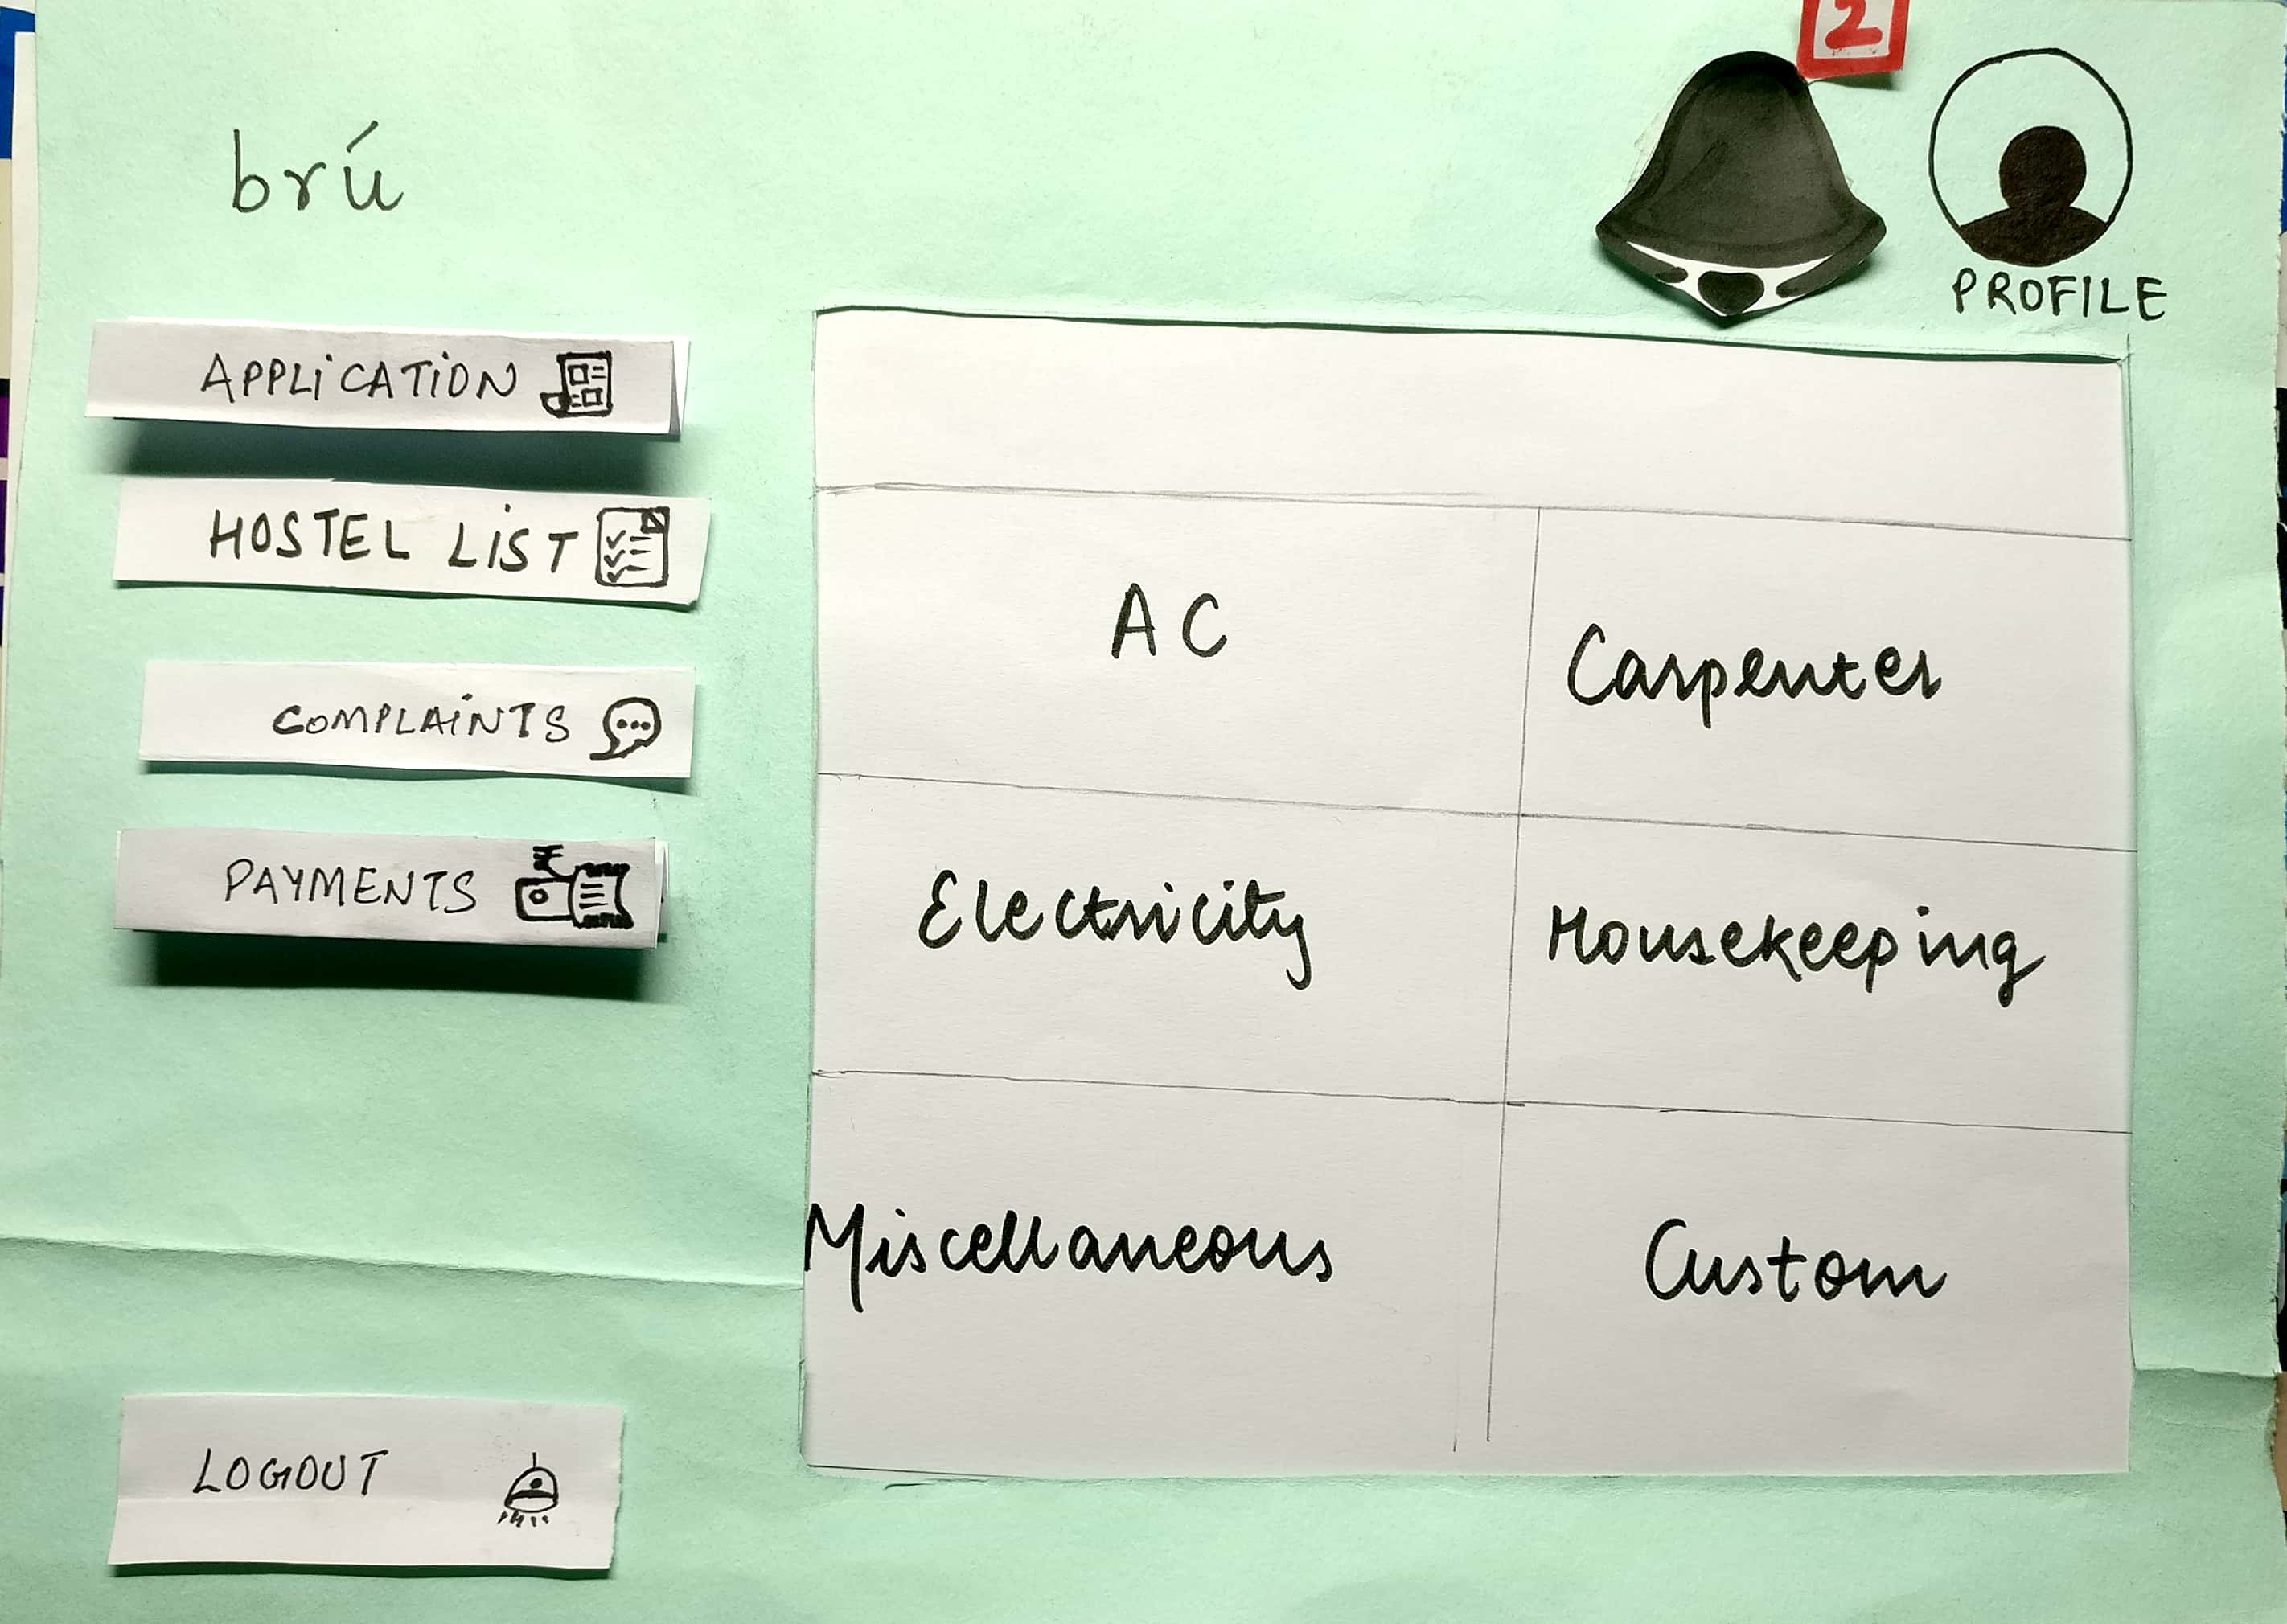 2
brú
PROFILE
APPLiCATiON
HOSTEL LiST
COMPLAiNTS
PAYMENTS
₹
LOGOUT
AC
Carpenter
Electricity
Housekeeping
Miscellaneous
Custom